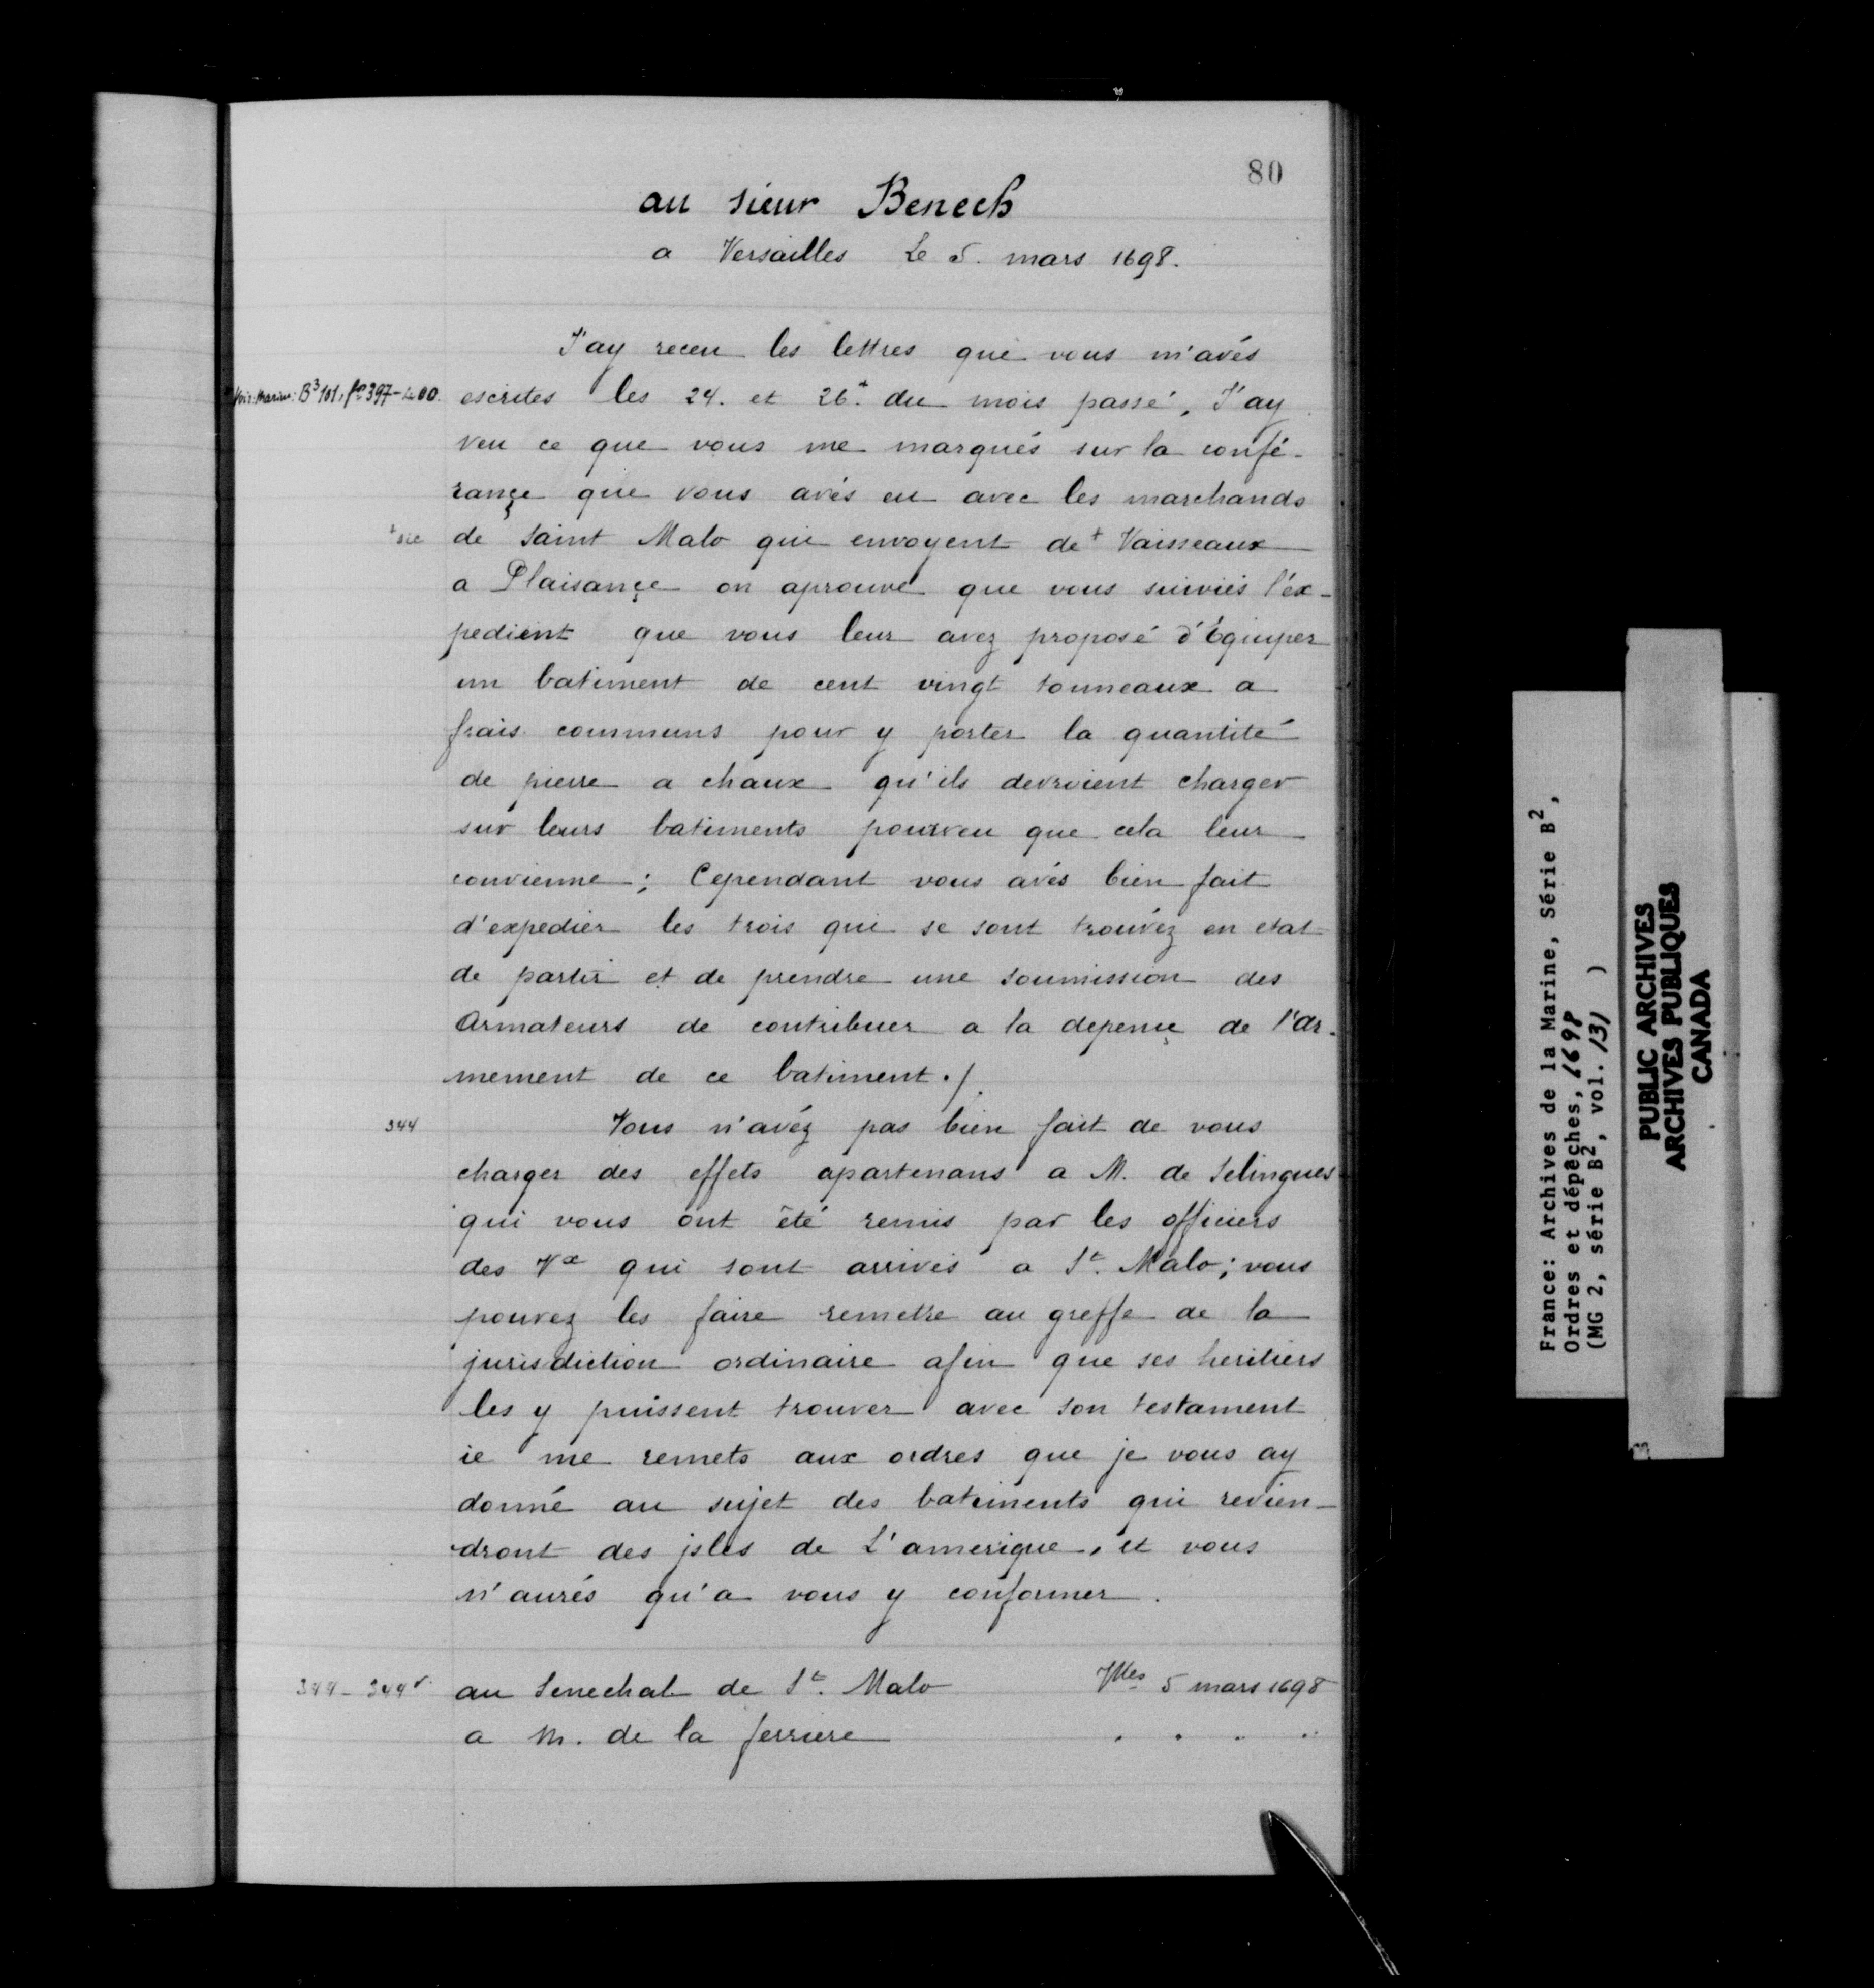 80
au sieur Benech
a Versailles Le 5. mars 1698.
J'ay receu les lettres que vous m'avés
Voir: Marine: B3 101, fos 397-400.
escrites les 24. et 26.+ du mois passé, J'ay
veu ce que vous me marqués sur la confé-
rançe que vous avés eu avec les marchands
+sic
de Saint Malo qui envoyent de+ Vaisseaux
a Plaisançe on aprouve que vous suiviés l'éx-
pedient que vous leur avez proposé d'Équiper
un batiment de cent vingt tonneaux a
frais communs pour y porter la quantité
de pierre a chaux qu'ils devroient charger
sur leurs batiments pourveu que cela leur
convienne; Cependant vous avés bien fait
d'expedier les trois qui se sont trouvéz en etat
de partir et de prendre une soumission des
Armateurs de contribuer a la depençe de l'Ar-
mement de ce batiment./.
344
Vous n'avéz pas bien fait de vous
charger des effets apartenans a M. de Selingues
qui vous ont été remis par les officiers
des Vx qui sont arrivés a St. Malo; vous
pouvez les faire remettre au greffe de la
jurisdiction ordinaire afin que ses heritiers
les y puissent trouver avec son testament
ie me remets aux ordres que je vous ay
donné au sujet des batiments qui revien-
dront des jsles de L'amerique, et vous
n'aurés qu'a vous y conformer.
344-344v.
au Senechal de St. Malo Vlles 5 mars 1698
a M. de la ferriere . . . ..
France: Archives de la Marine, Série B2,
Ordres et dépêches, 1698
(MG 2, série B2, vol. 131 )
PUBLIC ARCHIVES
ARCHIVES PUBLIQUES
CANADA